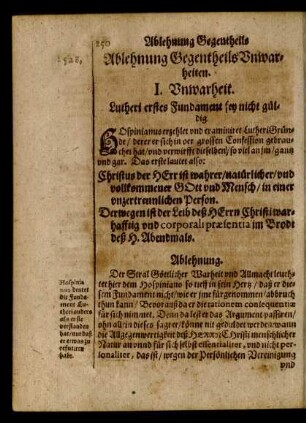 250
Ablehnung Gegentheils
1528.
Ablehnung Gegentheils Vnwar-
heiten.
I. Vnwarheit.
Lutheri erstes Fundament sey nicht gül-
dig
HOspinianus erzehlet vnd examiniret Lutheri Grün-
de/ derer er sich in der grossen Confession gebrau-
chet hat/ vnd verwirfft dieselben/ so viel an jm/ gantz
vnd gar. Das erste lautet also:
Christus der HErr ist wahrer/ natürlicher/ vnd
vollkommener GOtt vnd Mensch/ in einer
vnzertrennlichen Person.
Derwegen ist der Leib deß HErrn Christi war-
hafftig vnd corporali præsentia im Brodt
deß H. Abendmals.
Ablehnung.
Der Stral Göttlicher Warheit vnd Allmacht leuch-
tet hier dem Hospiniano so tieff in sein Hertz/ daß er die-
sem Fundament nicht/ wie er jme fürgenommen/ abbruch
thun kan/
Denn da lest er das Argument passiren/
ohn all in dieses sagt er/ könne nit geduldet werden/ wann
die Allgegenwertigkeit deß HERRN Christi menschlicher
Natur an vnnd für sich selbst essentialiter, vnd nicht per-
sonaliter, das ist/ wegen der Persönlichen Vereinigung
vnd
Hospinia-
nus deutet
die Funda-
ment Lu-
theri anders
als er sie
verstanden
hat/
er etwas zu
refutiren
habe.